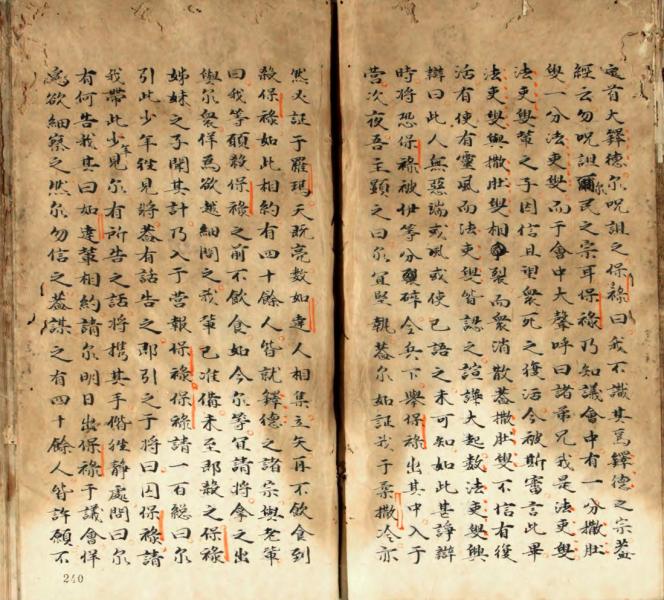 首大鐸德尔呪詛之保祿曰我不識其爲鐸德之宗蓋
經云勿呪詛爾民之宗耳保祿乃知議會中有一分撒肚
叟一分法吏叟而于會中大聲呼曰諸弟兄我是法吏叟
法吏叟輩之子因信且望衆死之復活今被斷審言此畢
法吏叟與撒肚叟相裂而衆消散蓋撒肚叟不信有復
活有使有靈風而法吏叟皆認之諠譁大起数法吏叟興
辯曰此人無惡端或風或使已語之未可知如此其諍辯
時將恐保祿被伊等分裂碎令兵下舉保祿出其中入于
营次夜吾主顯之曰尔宜堅執蓋尔如証我于柔撒冷亦
然必証于羅瑪天既亮数如達人相集立矢再不飲食到
殺保祿如此相約有四十餘人皆就鐸德之諸宗與老輩
曰我等願殺保祿之前不飲食如今尔等宜請將拿之出
與尔衆佯爲欲越細問之我輩已准俻未至即殺之保祿
姊妹之子聞其計乃入于营報保祿保祿請一百総曰尔
引此少年徃見將蓋有話告之即引之于將曰囚保祿請
我帶此少年見尔有所告之話將携其手偕徃静處問曰尔
有何告我其曰如達輩相約請尔明日出保祿于議會佯
爲欲細察之然尔勿信之蓋謀之有四十餘人皆許願不
240